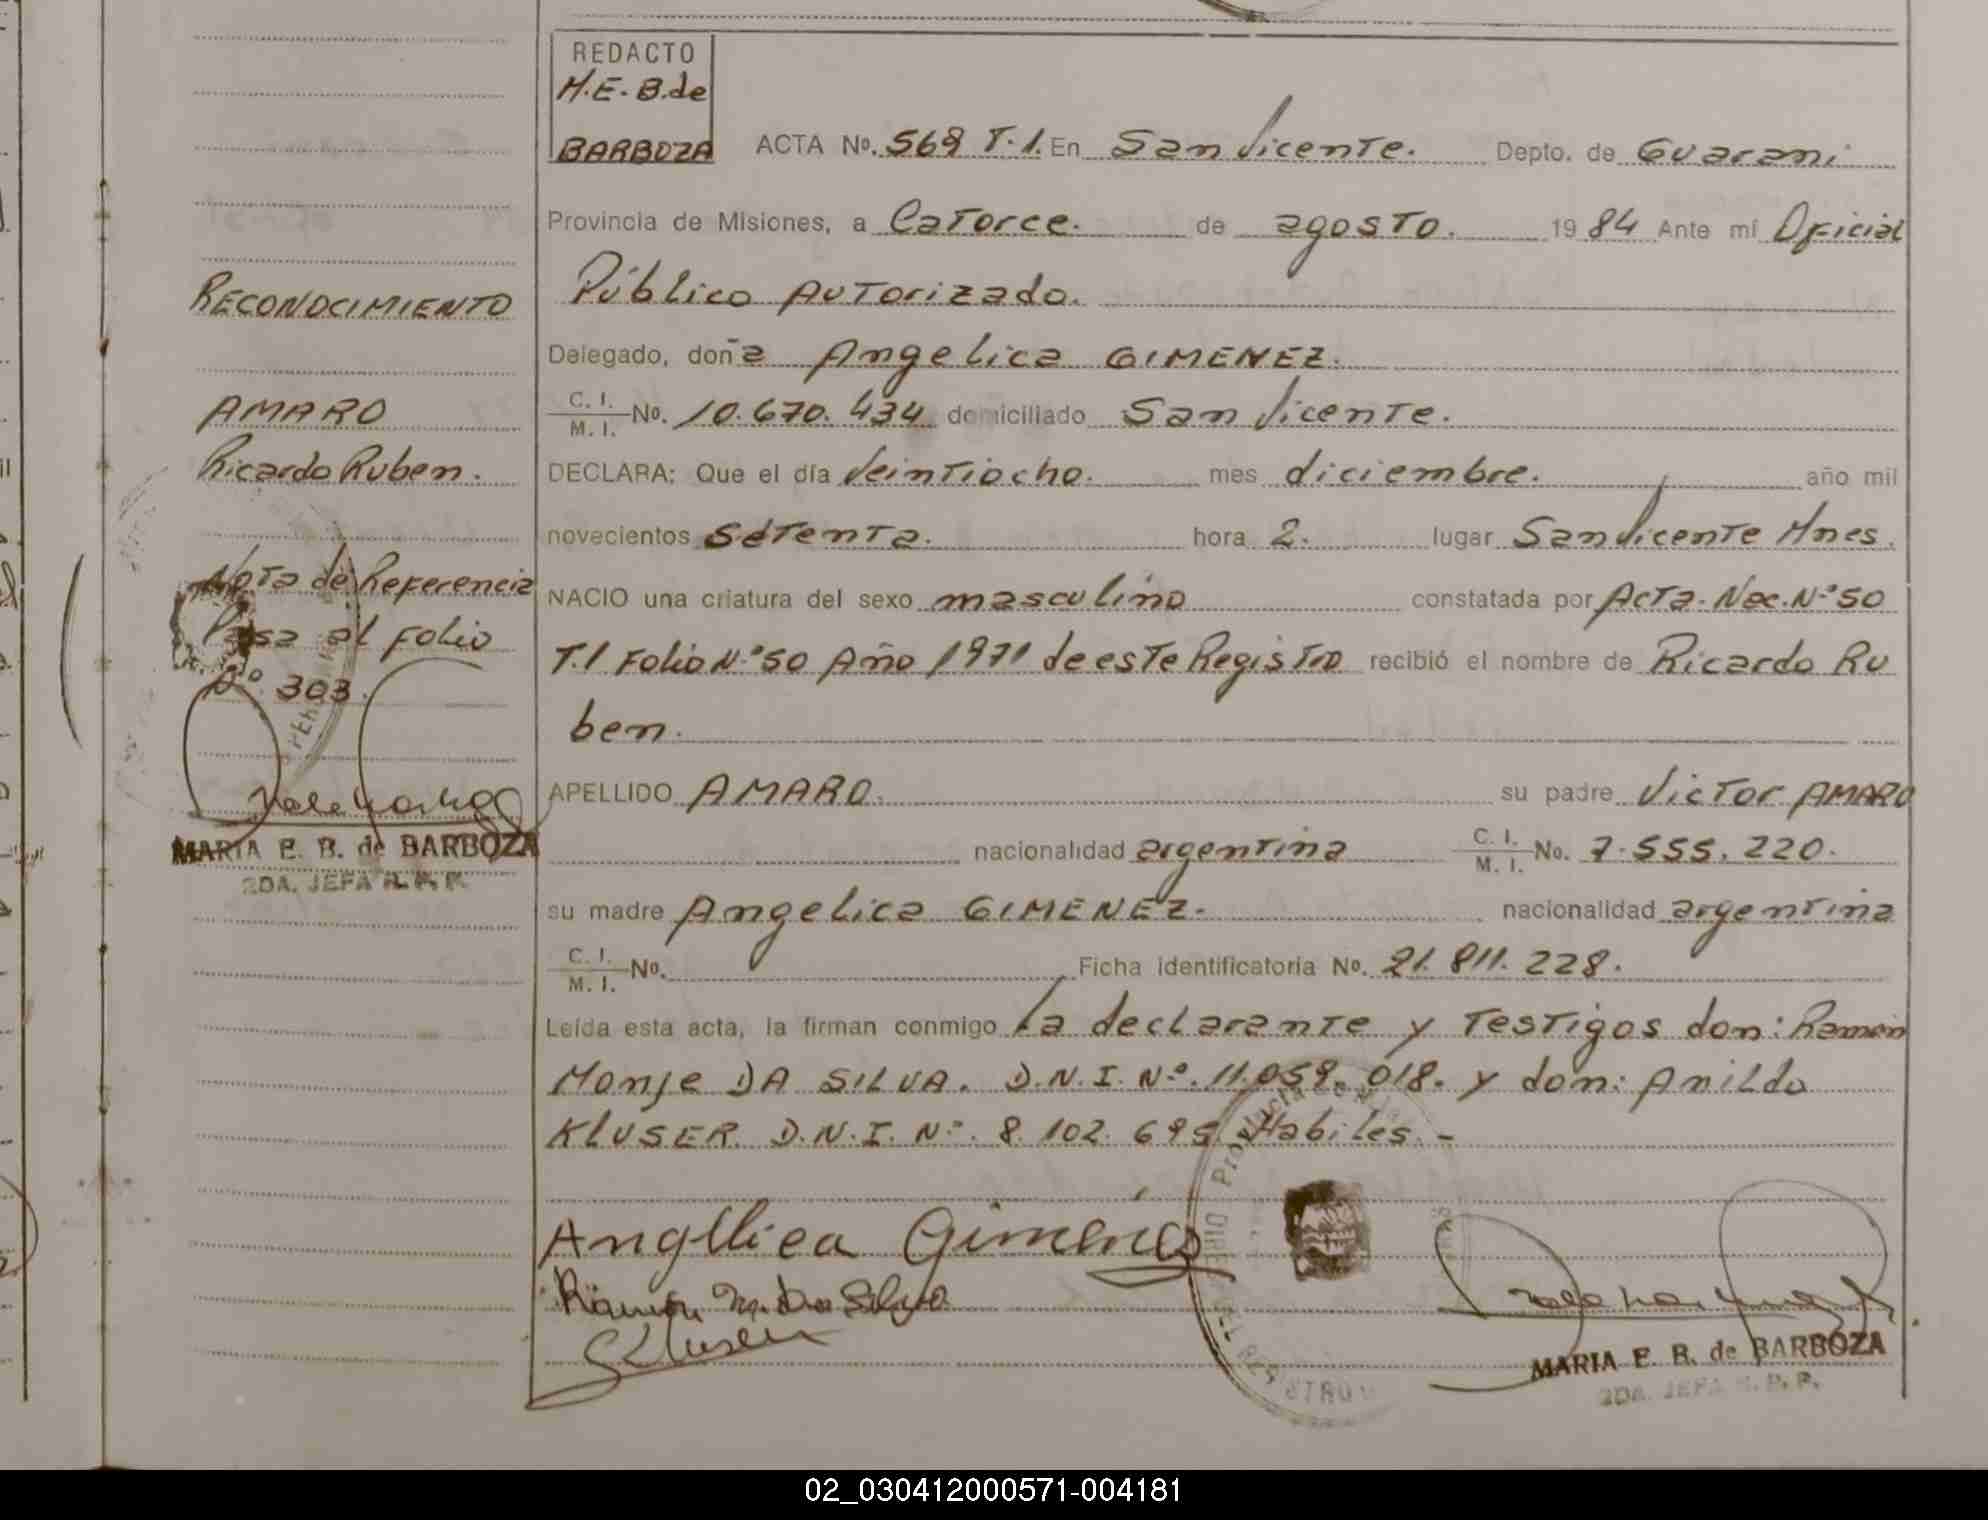 REDACTO
M.E-B.de
BARBOZA
ACTA No. 569 T.1. En San Vicente. Depto. de Guarani
Provincia de Misiones, a Catorce. de agosto. 1984 Ante mí Oficial
Público Autorizado.
Delegado, doña Angelica GIMENEZ.
C. I.
M. I. No. 10.670.434 domiciliado San Vicente.
DECLARA: Que el día Veintiocho. mes diciembre. año mil
novecientos setenta. hora 2. lugar San Vicente Mnes.
NACIO una criatura del sexo masculino constatada por Acta. Nac. N°50
T.1 Folio N°50 Año 1971 de este Registro recibió el nombre de Ricardo Ru
ben.
APELLIDO AMARO. su padre Victor AMARO
nacionalidad argentina C. I.
M. I. No. 7.555.220.
su madre Angelica GIMENEZ. nacionalidad argentina
C. I.
M. I. No. Ficha identificatoria No. 21.811.228.
Leída esta acta, la firman conmigo la declarante y Testigos don: Ramón
Monje DA SILVA. D.N.I. N°. 11.059.018. y don: Anildo
KLUSER. D.N.I. N°. 8.102.695 Habiles. -
Angelica Giménez
Ramón M. Da Silva
Kluser
MARIA E. B. de BARBOZA
2DA. JEFA R. P. P.
RECONOCIMIENTO
AMARO
Ricardo Ruben.
Nota de Referencia
Pasa al Folio
N° 303.
MARIA E. B. de BARBOZA
2DA. JEFA R. P. P.
02_030412000571-004181